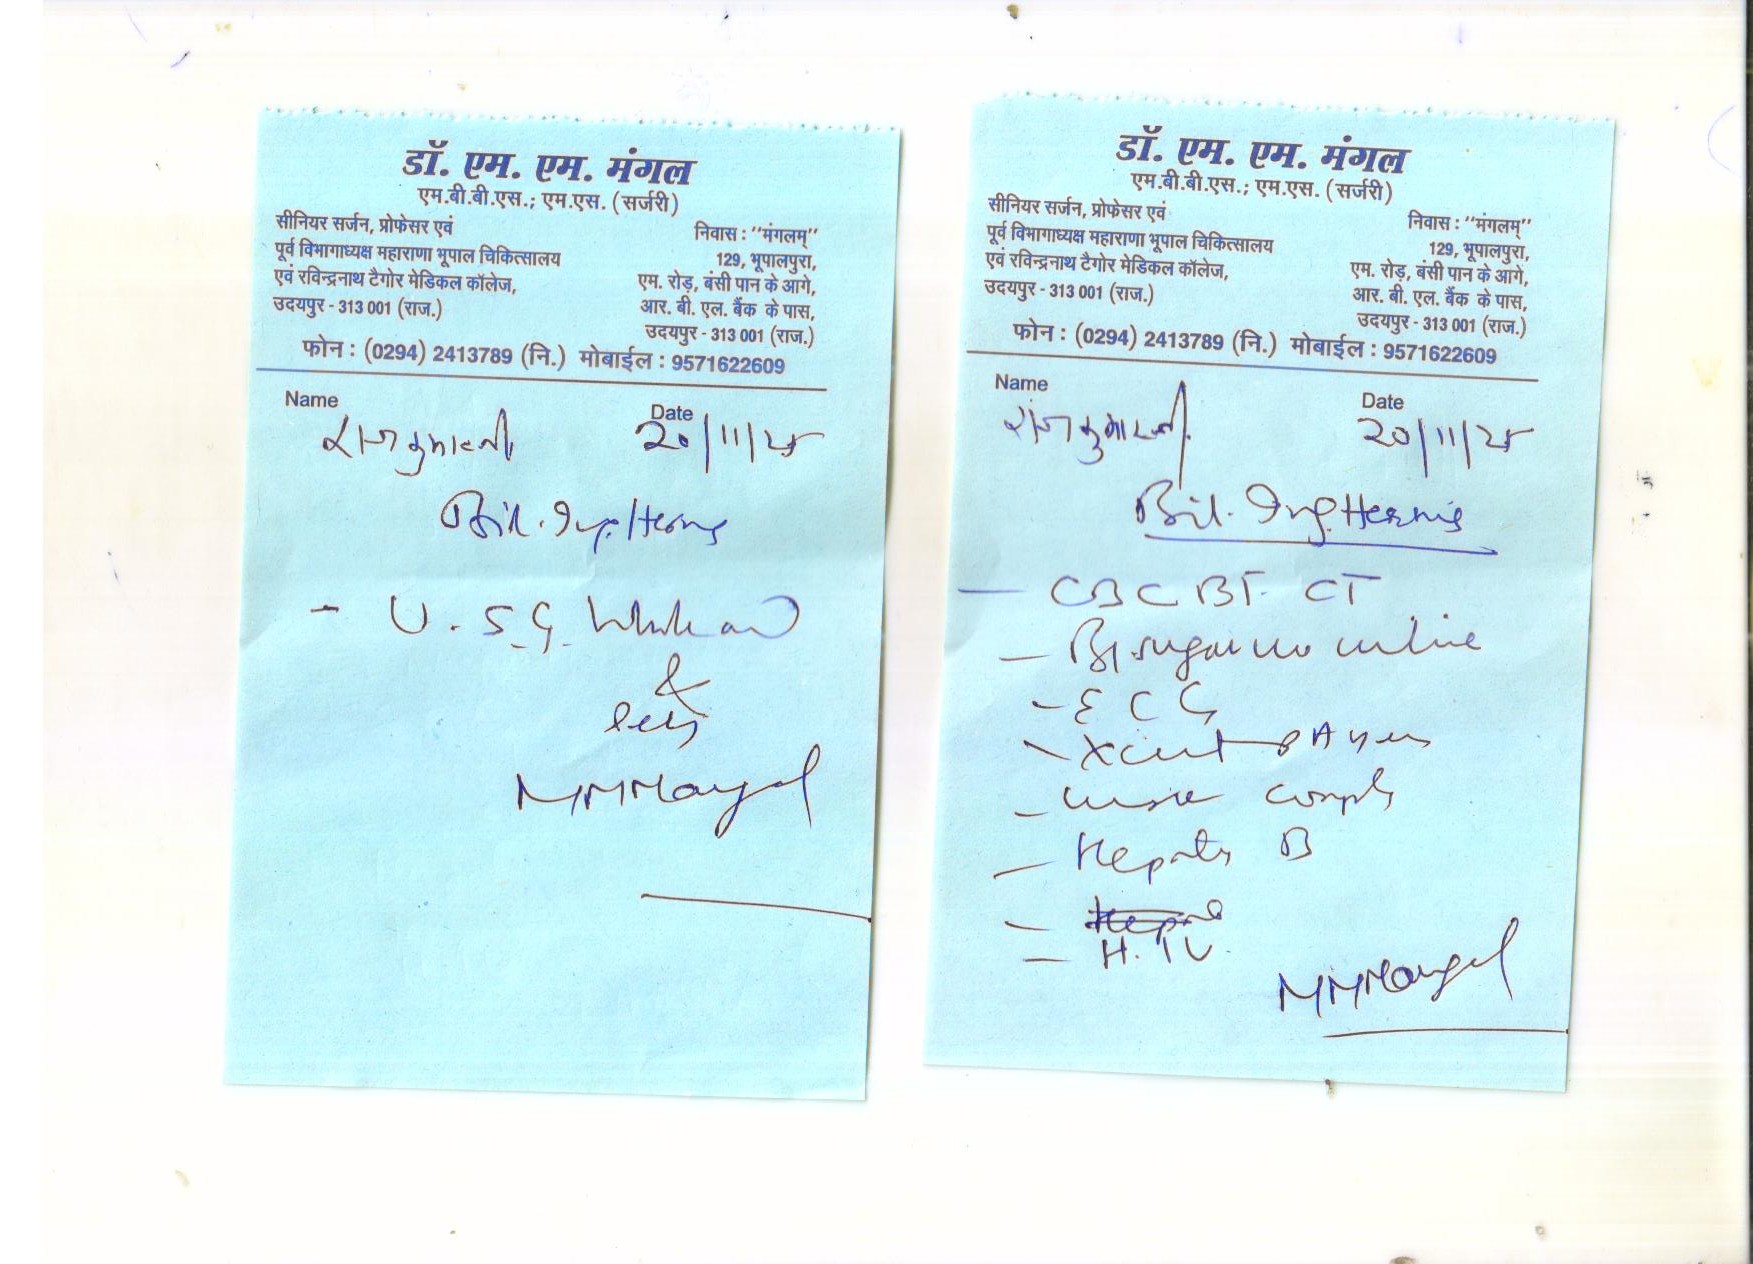 डॉ. एम. एम. मंगल
एम.बी.बी.एस.; एम.एस. (सर्जरी)
सीनियर सर्जन, प्रोफेसर एवं
पूर्व विभागाध्यक्ष महाराणा भूपाल चिकित्सालय
एवं रविन्द्रनाथ टैगोर मेडिकल कॉलेज,
उदयपुर - 313 001 (राज.)
निवास : ''मंगलम्''
129, भूपालपुरा,
एम. रोड़, बंसी पान के आगे,
आर. बी. एल. बैंक के पास,
उदयपुर - 313 001 (राज.)
फोन : (0294) 2413789 (नि.) मोबाईल : 9571622609
Name Date
राजकुमारजी 20/11/25
Bil. Ing. Hernia
- U.S.G. Whole abd
&
MMMangal
डॉ. एम. एम. मंगल
एम.बी.बी.एस.; एम.एस. (सर्जरी)
सीनियर सर्जन, प्रोफेसर एवं
पूर्व विभागाध्यक्ष महाराणा भूपाल चिकित्सालय
एवं रविन्द्रनाथ टैगोर मेडिकल कॉलेज,
उदयपुर - 313 001 (राज.)
निवास : ''मंगलम्''
129, भूपालपुरा,
एम. रोड़, बंसी पान के आगे,
आर. बी. एल. बैंक के पास,
उदयपुर - 313 001 (राज.)
फोन : (0294) 2413789 (नि.) मोबाईल : 9571622609
Name Date
राजकुमारजी 20/11/25
Bil. Ing. Hernia
- CBC BT. CT
- Bl. sugar
- ECG
- urine compl
- Hepatis B
- H.IV.
MMMangal